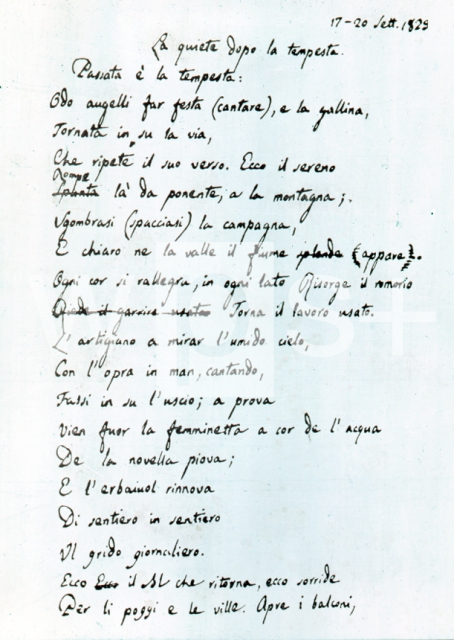 17-20 Sett. 1829
La quiete dopo la tempesta.
Passata è la tempesta:
Odo augelli far festa (cantare), e la gallina,
Tornata in su la via,
Che ripete il suo verso. Ecco il sereno
Rompe
Spunta là da ponente, a la montagna;
Sgombrasi (spacciasi) la campagna,
E chiaro ne la valle il fiume splende (appare).
Ogni cor si rallegra, in ogni lato Risorge il romorio
il garrire usato Torna il lavoro usato.
L'artigiano a mirar l'umido cielo,
Con l'opra in man, cantando,
Fassi in su l'uscio; a prova
Vien fuor la femminetta a cor de l'acqua
De la novella piova;
E l'erbaiuol rinnova
Di sentiero in sentiero
Il grido giornaliero.
Ecco Ecco il Sol che ritorna, ecco sorride
Per li poggi e le ville. Apre i balconi,